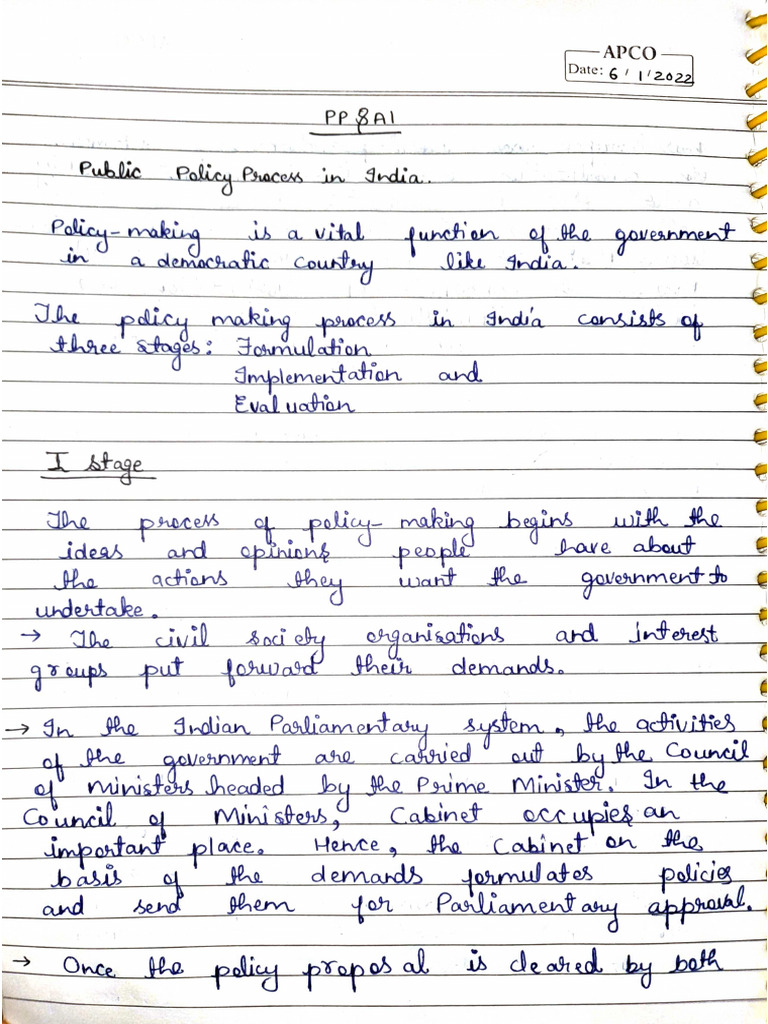 APCO
Date: 6/1/2022
PP&AI
Public Policy Process in India.
Policy-making is a vital function of the government
in a democratic country like India.
The policy making process in India consists of
three stages: Formulation
Implementation and
Evaluation
I stage
The process of policy-making begins with the
ideas and opinions people have about
the actions they want the government to
undertake.
→ The civil society organisations and interest
groups put forward their demands.
→ In the Indian Parliamentary system, the activities
of the government are carried out by the Council
of ministers headed by the Prime Minister. In the
Council of Ministers, Cabinet occupies an
important place. Hence, the Cabinet on the
basis of the demands formulates policies
and send them for Parliamentary approval.
→ Once the policy proposal is cleared by both